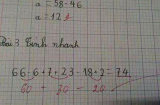 = 58-46
a = 12
Bài 3. Tính nhanh
66-6+7+23-18+2=74
60 - 30 - 20